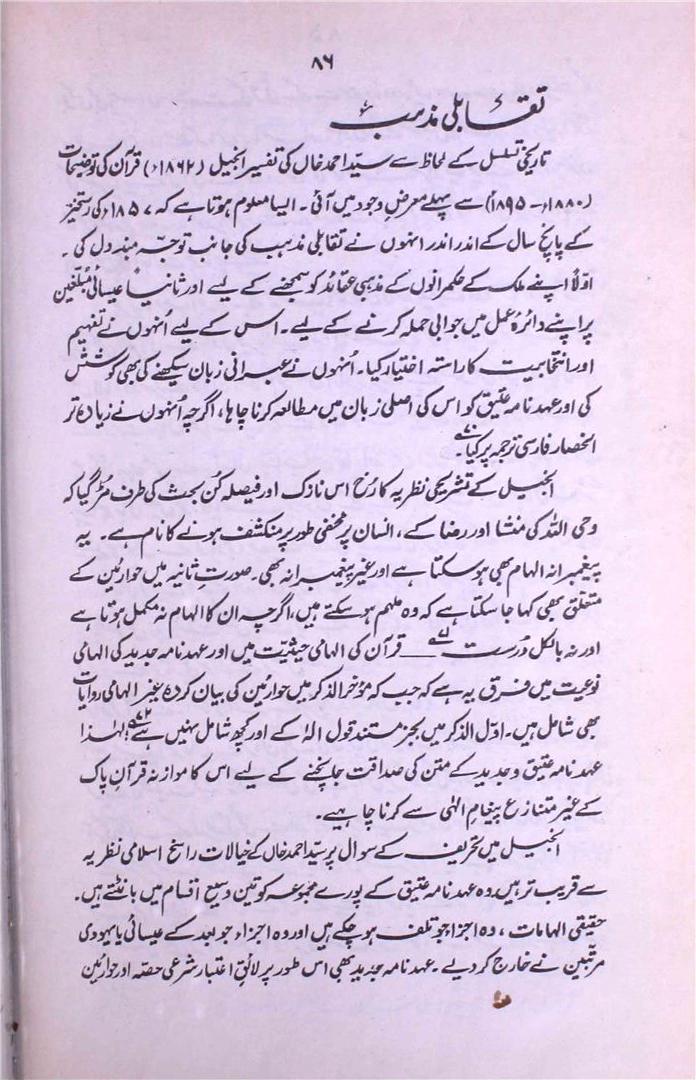 ۸۶
تقابلی مذہب
تاریخی تسلسل کے لحاظ سے سید احمد خاں کی تفسیر انجیل (۱۸۶۲ء) قرآن کی توضیحات
(۱۸۸۰ء - ۱۸۹۵ء) سے پہلے معرض وجود میں آئی۔ ایسا معلوم ہوتا ہے کہ ۱۸۵۷ء کی رستخیز
کے پانچ سال کے اندر اندر انہوں نے تقابلی مذہب کی جانب توجہ مبذول کی۔
اولاً اپنے ملک کے حکمرانوں کے مذہبی عقائد کو سمجھنے کے لیے اور ثانیاً عیسائی مُبلّغین
پر اپنے دائرہ عمل میں جوابی حملہ کرنے کے لیے۔ اس کے لیے اُنہوں نے تفہیم
اور انتخابیت کا راستہ اختیار کیا۔ اُنہوں نے عبرانی زبان سیکھنے کی بھی کوشش
کی اور عہد نامہ عتیق کو اس کی اصلی زبان میں مطالعہ کرنا چاہا، اگرچہ اُنہوں نے زیادہ تر
انحصار فارسی ترجمہ پر کیا۔
انجیل کے تشریحی نظریہ کا رُخ اس نازک اور فیصلہ کُن بحث کی طرف مڑ گیا کہ
وحی اللہ کی منشا اور رضا کے، انسان پر مخفی طور پر منکشف ہونے کا نام ہے۔ یہ
پیغمبرانہ الہام بھی ہو سکتا ہے اور غیر پیغمبرانہ بھی۔ صورتِ ثانیہ میں حوارئین کے
متعلق بھی کہا جا سکتا ہے کہ وہ ملہم ہو سکتے ہیں، اگرچہ ان کا الہام نہ مکمل ہوتا ہے
اور نہ بالکل دُرست ۷۱؎ قرآن کی الہامی حیثیت میں اور عہد نامہ جدید کی الہامی
نوعیت میں فرق یہ ہے کہ جب کہ مؤخر الذکر میں حوارئین کی بیان کردہ غیر الہامی روایات
بھی شامل ہیں۔ اوّل الذکر میں بجز مستند قول الٰہ کے اور کچھ شامل نہیں ہے ۷۲؎ لہٰذا
عہد نامہ عتیق و جدید کے متن کی صداقت جانچنے کے لیے اس کا موازنہ قرآنِ پاک
کے غیر متنازع پیغامِ الٰہی سے کرنا چاہیے۔
انجیل میں تحریف کے سوال پر سیّد احمد خاں کے خیالات راسخ اسلامی نظریہ
سے قریب تر ہیں، وہ عہد نامہ عتیق کے پورے مجموعہ کو تین وسیع اقسام میں بانٹتے ہیں۔
حقیقی الہامات، وہ اجزا جو تلف ہو چکے ہیں اور وہ اجزاء جو بعد کے عیسائی یا یہودی
مرتّبین نے خارج کر دیے۔ عہد نامہ جدید بھی اس طور پر لائقِ اعتبار شرعی حصّہ اور حوارئین